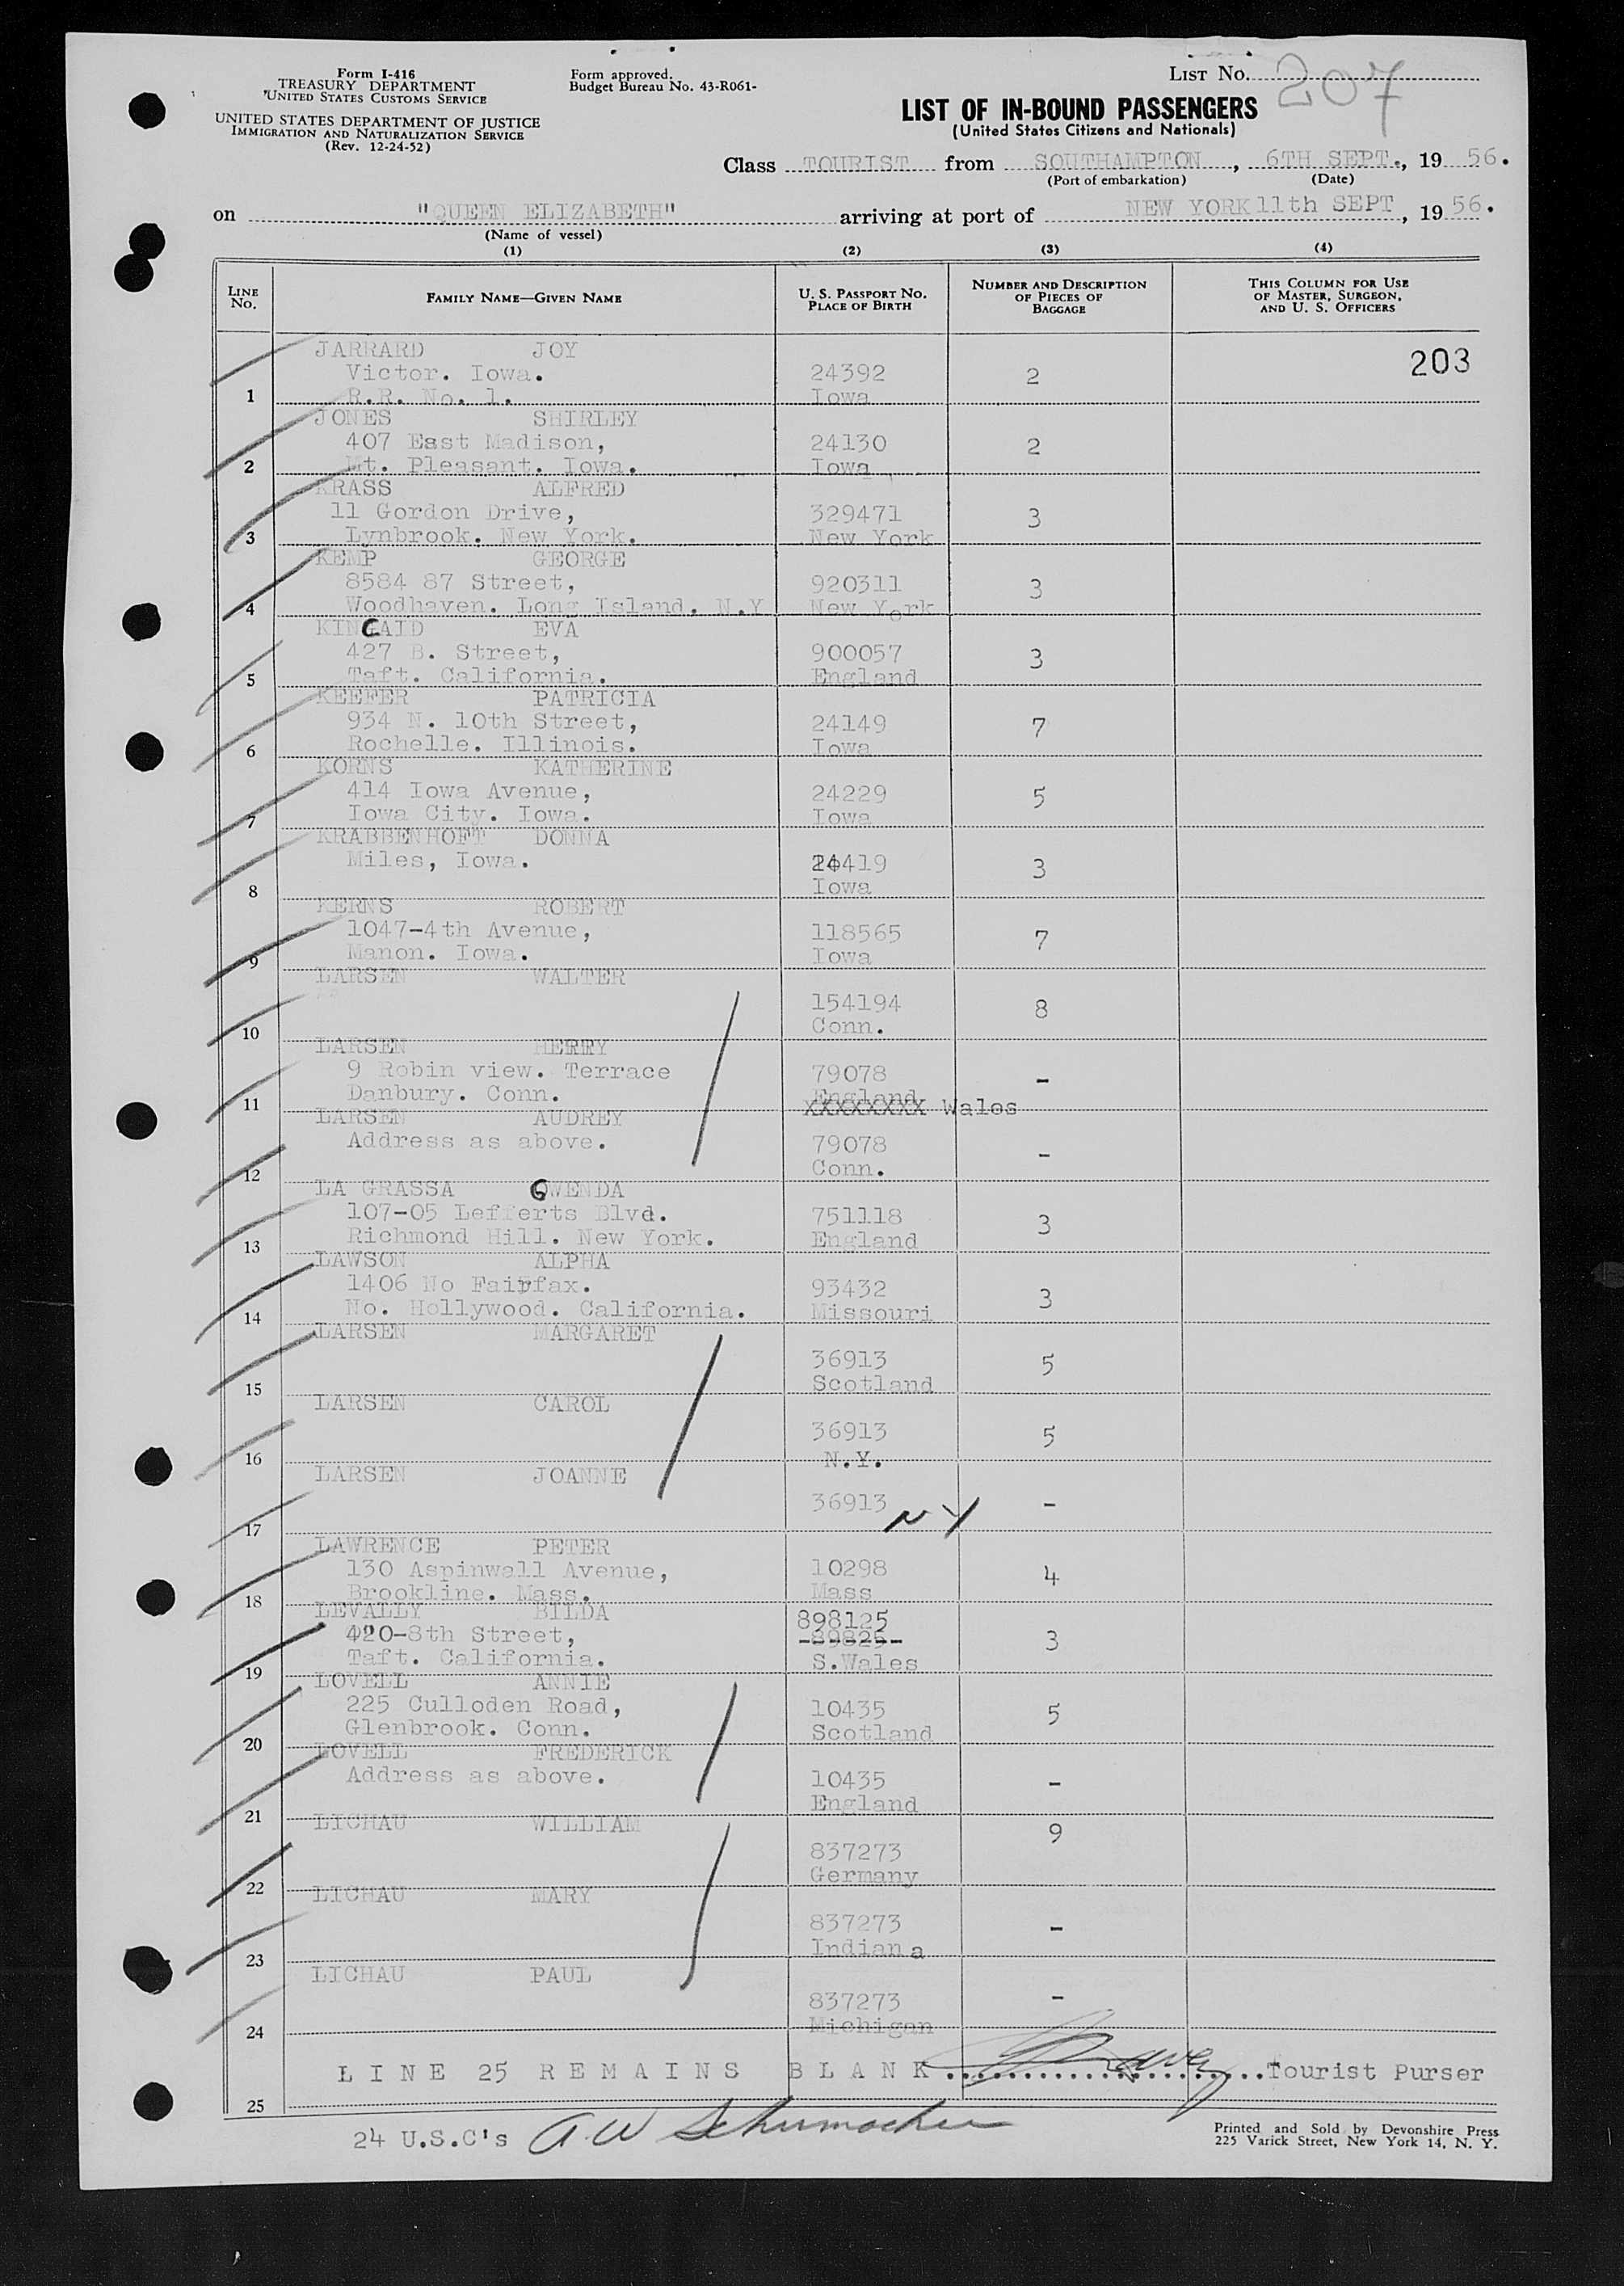 Form I-416
TREASURY DEPARTMENT
UNITED STATES CUSTOMS SERVICE
UNITED STATES DEPARTMENT OF JUSTICE
IMMIGRATION AND NATURALIZATION SERVICE
(Rev. 12-24-52)
Form approved.
Budget Bureau No. 43-R061-
LIST No. 207
LIST OF IN-BOUND PASSENGERS
(United States Citizens and Nationals)
Class TOURIST from SOUTHAMPTON, 6TH SEPT., 19 56.
(Port of embarkation) (Date)
on "QUEEN ELIZABETH" arriving at port of NEW YORK 11th SEPT, 19 56.
(Name of vessel)
(1) (2) (3) (4)
LINE No. FAMILY NAME—GIVEN NAME U. S. PASSPORT NO. PLACE OF BIRTH NUMBER AND DESCRIPTION OF PIECES OF BAGGAGE THIS COLUMN FOR USE OF MASTER, SURGEON, AND U. S. OFFICERS
203
JARRARD JOY
Victor. Iowa. 24392 2
1 R.R. No. 1. Iowa
JONES SHIRLEY
407 East Madison, 24130 2
2 Mt. Pleasant. Iowa. Iowa
KRASS ALFRED
11 Gordon Drive, 329471 3
3 Lynbrook. New York. New York
KEMP GEORGE
8584 87 Street, 920311 3
4 Woodhaven. Long Island. N.Y New York
KINCAID EVA
427 B. Street, 900057 3
5 Taft. California. England
KEEFER PATRICIA
934 N. 10th Street, 24149 7
6 Rochelle. Illinois. Iowa
KORNS KATHERINE
414 Iowa Avenue, 24229 5
7 Iowa City. Iowa. Iowa
KRABBENHOFT DONNA
Miles, Iowa. 24419 3
8 Iowa
KERNS ROBERT
1047-4th Avenue, 118565 7
9 Manon. Iowa. Iowa
LARSEN WALTER
154194 8
10 Conn.
LARSEN
9 Robin view. Terrace 79078 -
11 Danbury. Conn. England
XXXXXXXX Wales
LARSEN AUDREY
Address as above. 79078 -
12 Conn.
LA GRASSA GWENDA
107-05 Lefferts Blvd. 751118 3
13 Richmond Hill. New York. England
LAWSON ALPHA
1406 No Fairfax. 93432 3
14 No. Hollywood. California. Missouri
LARSEN MARGARET
36913 5
15 Scotland
LARSEN CAROL
36913 5
16 N.Y.
LARSEN JOANNE
36913 NY -
17
LAWRENCE PETER
130 Aspinwall Avenue, 10298 4
18 Brookline. Mass. Mass
LEVALLY BILDA 898125
420-8th Street, -89825- 3
19 Taft. California. S.Wales
LOVELL ANNIE
225 Culloden Road, 10435 5
20 Glenbrook. Conn. Scotland
LOVELL FREDERICK
Address as above. 10435 -
21 England
LICHAU WILLIAM 9
837273
22 Germany
LICHAU MARY
837273 -
23 Indiana
LICHAU PAUL
837273 -
24 Michigan
LINE 25 REMAINS BLANK Tourist Purser
25
24 U.S.C's A W Schumacher
Printed and Sold by Devonshire Press
225 Varick Street, New York 14, N. Y.